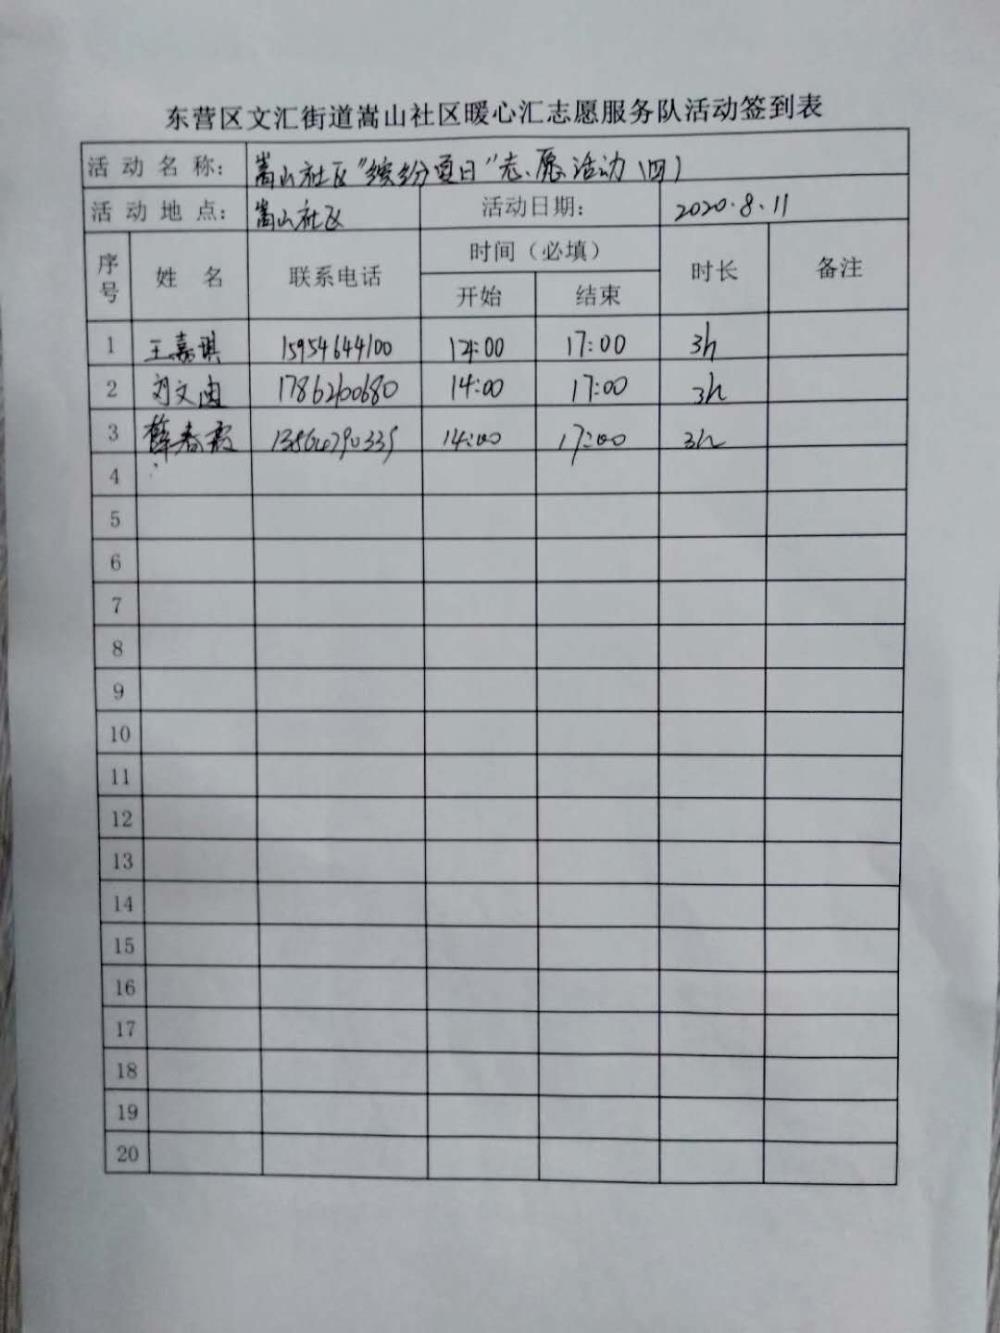 东营区文汇街道嵩山社区暖心汇志愿服务队活动签到表
活动名称: 嵩山社区"缤纷夏日"志愿活动(四)
活动地点: 嵩山社区 活动日期: 2020.8.11
序号 姓名 联系电话 时间（必填） 时长 备注
开始 结束
1 王嘉琪 15954644100 14:00 17:00 3h
2 刘文迪 17862100680 14:00 17:00 3h
3 薛春霞 14:00 17:00 3h
4
5
6
7
8
9
10
11
12
13
14
15
16
17
18
19
20